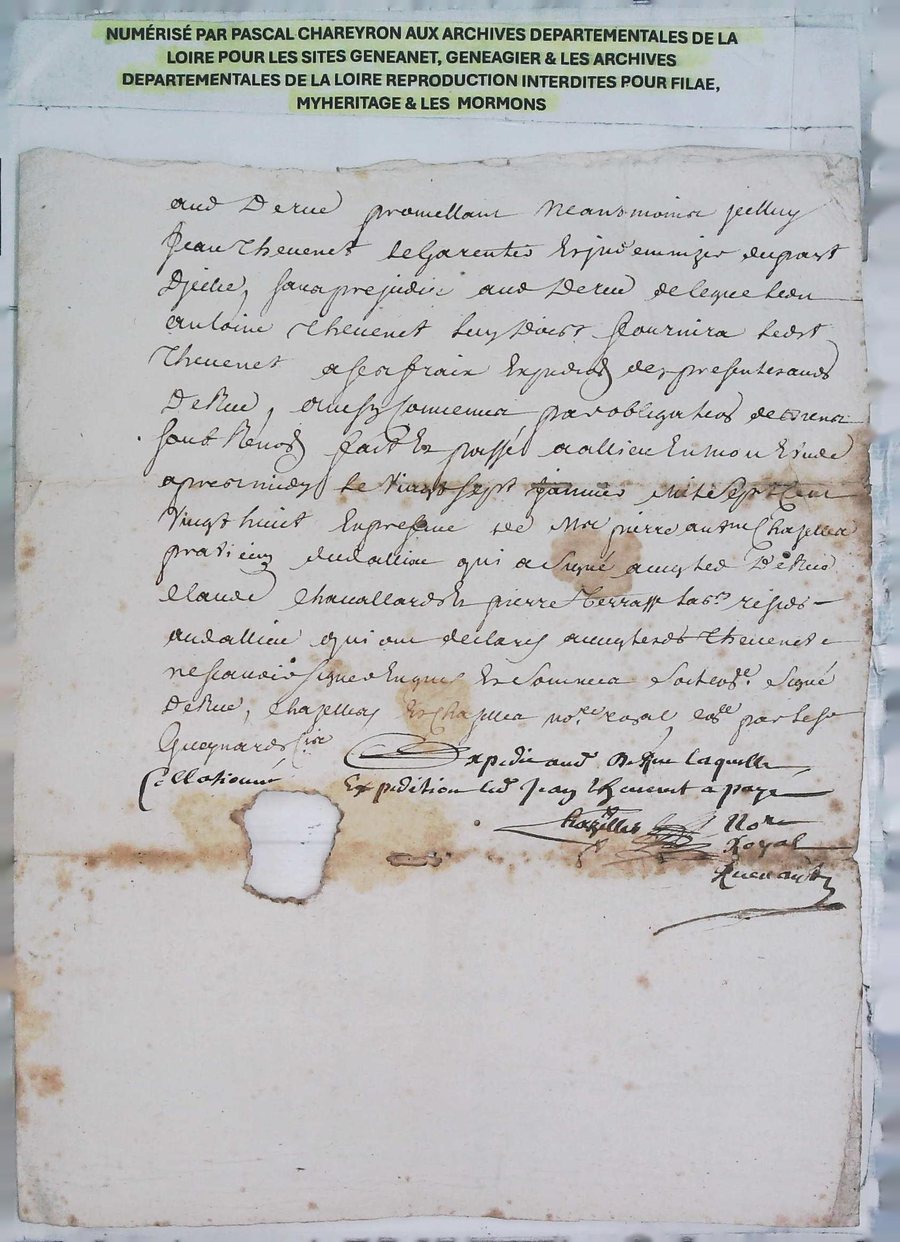 NUMÉRISÉ PAR PASCAL CHAREYRON AUX ARCHIVES DEPARTEMENTALES DE LA
LOIRE POUR LES SITES GENEANET, GENEAGIER & LES ARCHIVES
DEPARTEMENTALES DE LA LOIRE REPRODUCTION INTERDITES POUR FILAE,
MYHERITAGE & LES MORMONS
aud Derue promettant neantmoins jcelluy
Jean Thevenet le Garentir et jndemnizer du part
Djcelle, sans prejudice aud Derue
Antoine Thevenet luy fournira led
Thevenet a ses fraix des presentes aud
Derue, ainsy convenu par obligation de
fait et passé a allieu en mon etude
apres midy le vingt sept janvier mil sept cent
vingt huit en presence de Mre pierre Chazelles
praticien dud allieu qui a signé avec led Derue
Claude Chavallard et pierre Terrasse residts
aud allieu qui ont declaré avec led Thevenet
ne scavoir signer enquis et Signé
Derue, Chapellas et Chazelles nore royal par le sr
Gueynard
Collationné
Expedié aud Derue laquelle
Expedition led Jean Thevenet a payé
Chazelles Nore
Royal